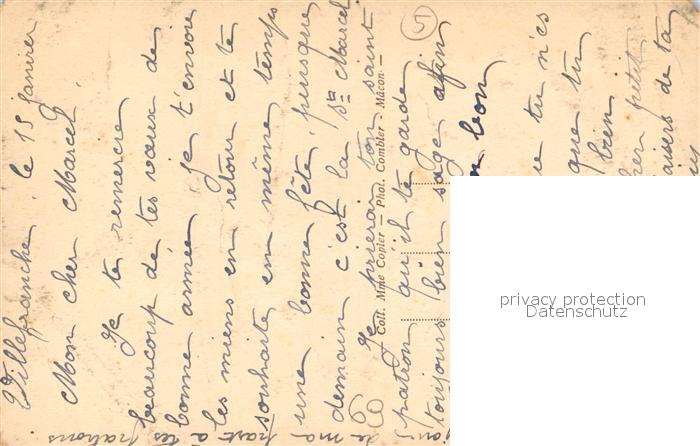 Villefranche, le 15 janvier
Mon cher Marcel,
Je te remercie
beaucoup de tes vœux de
bonne année je t'envoie
les miens en retour et te
souhaite en même temps
une bonne fête, puisque
demain c'est la St Marcel
Je prierai ton saint
patron qu'il te garde
toujours bien sage afin
bon
que tu n'es
que tu
bien
cher petit
baisers de ta
de ma part à tes patrons.
Coll. Mme Copier — Phot. Combier - Mâcon
69
5
privacy protection
Datenschutz